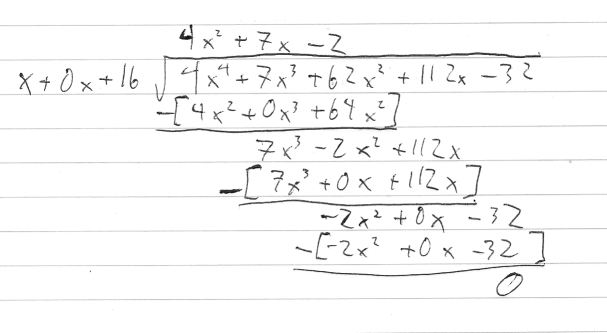 4x² + 7x - 2
x + 0x + 16 √ 4x⁴ + 7x³ + 62x² + 112x - 32
-[4x² + 0x³ + 64x²]
7x³ - 2x² + 112x
-[7x³ + 0x + 112x]
-2x² + 0x - 32
-[-2x² + 0x - 32]
0